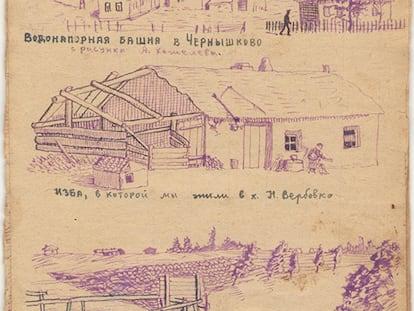 Водонапорная башня в Чернышково
с рисунка А. Кошелева.
Изба, в которой мы жили в х. Н. Вербовка